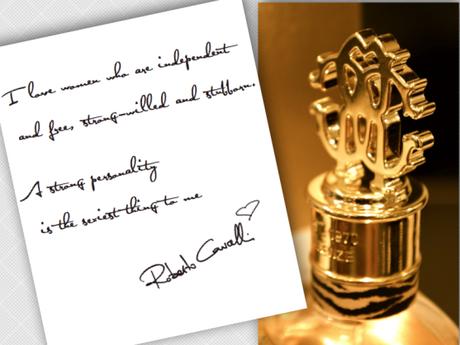 I love women who are independent
and free, strong-willed and stubborn.
A strong personality
is the sexiest thing to me
Roberto Cavalli